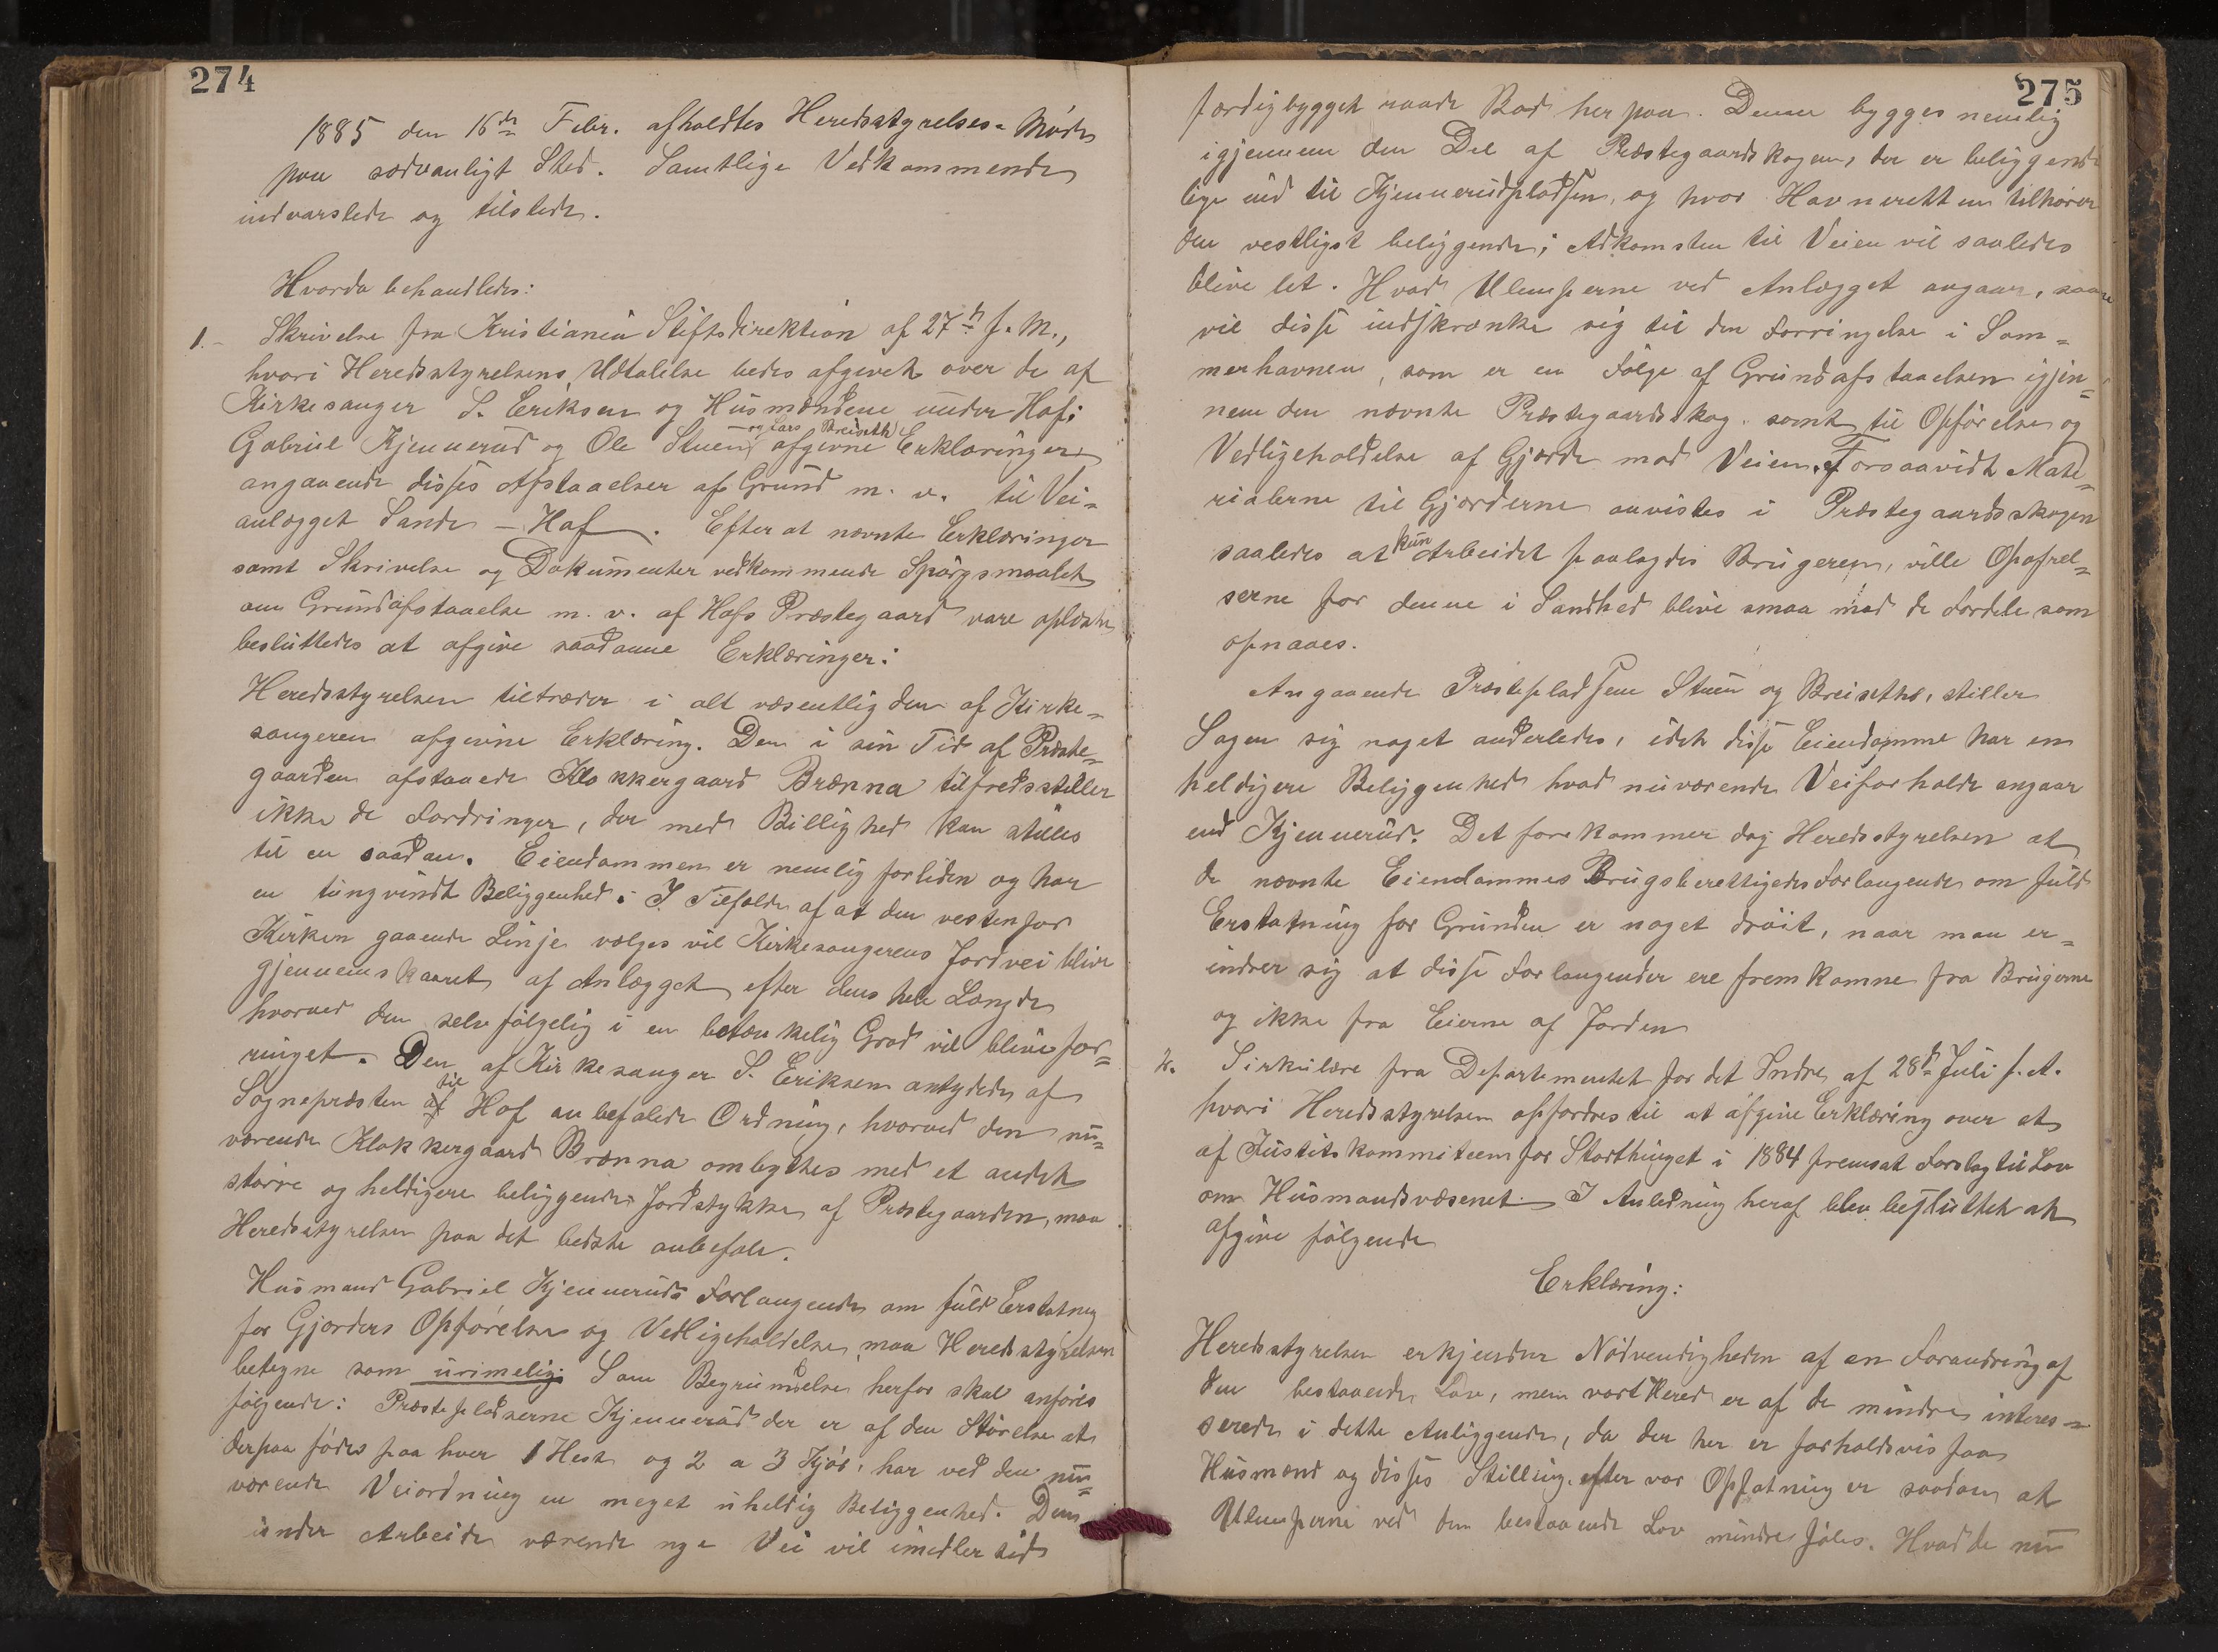 274
1885 den 16de Febr. afholdtes Heredsstyrelses=Møde
paa sædvanligt Sted. Samtlige Vedkommende
indvarslede og tilstede.
Hvorda behandledes:
1.- Skrivelse fra Kristiania Stiftsdirektion af 27de f. M.,
hvori Heredsstyrelsens Udtalelse bedes afgivet over de af
Kirkesanger S. Eriksen og Husmændene under Hof:
og Lars Breiseth
Gabriel Kjennerud og Ole Stuen afgivne Erklæringer
angaaende disses Afstaaelser af Grund m. v. til Vei-
anlægget Sande - Hof. Efter at nævnte Erklæringer
samt Skrivelse og Dokumenter vedkommende Spørgsmaalet
om Grundafstaaelse m. v. af Hofs Præstegaard vare oplæste
besluttedes at afgive saadanne Erklæringer:
Heredsstyrelsen tiltræder i alt væsentlig den af Kirke=
sangeren afgivne Erklæring. Den i sin Tid af Præste=
gaarden afstaaede Klokkergaard Brænna tilfredsstiller
ikke de Fordringer, der med Billighed kan stilles
til en saadan. Eiendommen er nemlig forliden og har
en tungvindt Beliggenhed. I Tilfælde af at den vestenfor
Kirken gaaende Linje vælges vil Kirkesangerens Jordvei blive
gjennemskaaret af Anlægget efter dens hele Længde
hvorved den selvfølgelig i en betænkelig Grad vil blive for=
ringet. Den af Kirkesanger S. Eriksen antydede af
til
Sognepræsten af Hof anbefalede Ordning, hvorved den nu=
værende Klokkergaard Brænna ombyttes med et andet
større og heldigere beliggende Jordstykke af Præstegaarden, maa
Heredsstyrelsen paa det bedste anbefale.
Husmand Gabriel Kjenneruds Forlangende om fuld Erstatning
for Gjærders Opførelse og Vedligeholdelse maa Heredsstyrelsen
betegne som urimelig. Som Begrundelse herfor skal anføres
følgende: Præstepladserne Kjennerud der er af den Størelse at
derpaa fødes paa hver 1 Hest og 2 a 3 Kjør, har ved den nu=
værende Veiordning en meget uheldig Beliggenhed. Den
under Arbeide værende nye Vei vil imedlertid
275
færdigbygget raade Bod herpaa. Denne bygges nemlig
igjennem den Del af Præstegaardskogen, der er beliggende
lige ind til Kjennerudpladsen, og hvor Havneretten tilhører
den vestligst beliggende; Adkomsten til Veien vil saaledes
blive let. Hvad Ulemperne ved Anlægget angaar, saa
vil disse indskrænke sig til den Forringelse i Som=
merhavnen, som er en Følge af Grundafstaaelsen igjen=
nem den nævnte Præstegaardsskog samt til Opførelse og
Vedligeholdelse af Gjærde mod Veien. Forsaavidt Mate=
rialerne til Gjærderne anvistes i Præstegaardsskogen
kun
saaledes at Arbeidet paalagdes Brugeren, ville Opofrel=
serne for denne i Sandhed blive smaa mod de Fordele som
opnaaes.
Angaaende Præstepladsene Stuen og Breiseth, stiller
Sagen sig noget anderledes, idet disse Eiendomme har en
heldigere Beliggenhed hvad nuværende Veiforholde angaar
end Kjennerud. Det forekommer dog Heredsstyrelsen at
de nævnte Eiendommes Brugsberettigedes Forlangende om fuld
Erstatning for Grunden er noget drøit, naar man er=
indrer sig at disse Forlangender ere fremkomne fra Brugerne
og ikke fra Eierne af Jorden
2. Sirkulære fra Departementet for det Indre af 28de Juli f. A.
hvori Heredsstyrelsen opfordres til at afgive Erklæring over et
af Justitskommiteen for Storthinget i 1884 fremsat Forslag til Lov
om Husmandsvæsenet. I Anledning heraf blev besluttet at
afgive følgende
Erklæring:
Heredsstyrelsen erkjender Nødvendigheden af en Forandring af
den bestaaende Lov, men vort Hered er af de mindre interes=
serede i dette Anliggende, da der her er forholdsvis faa
Husmænd og disses Stilling efter vor Opfatning er saadan at
Ulemperne ved den bestaaende Lov mindre føles. Hvad de nu